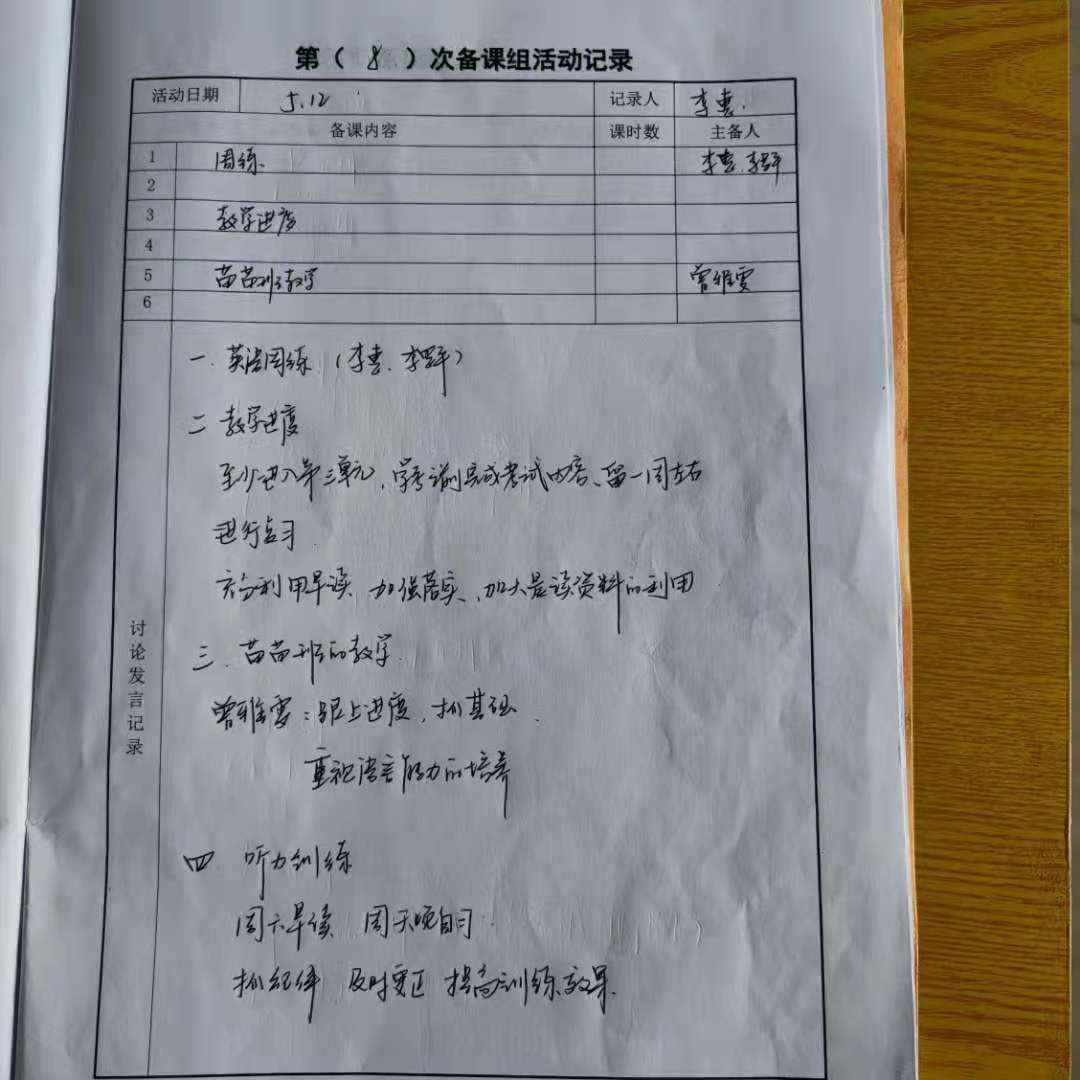 第（ 8 ）次备课组活动记录
活动日期 5.12 记录人 李惠.
备课内容 课时数 主备人
1 周练. 李惠.李群
2
3 教学进度
4
5 苗苗班教学 曾雅雯
6
讨论发言记录
一. 英语周练 （李惠.李群）
二 教学进度
至少进入第三单元，学考前完成考试内容、留一周左右
进行复习.
充分利用早读 加强落实、加大晨读资料的利用
三. 苗苗班的教学.
曾雅雯：跟上进度，抓基础.
重视语言能力的培养
四 听力训练
周六早读 周天晚自习.
抓纪律 及时更正 提高训练效果.